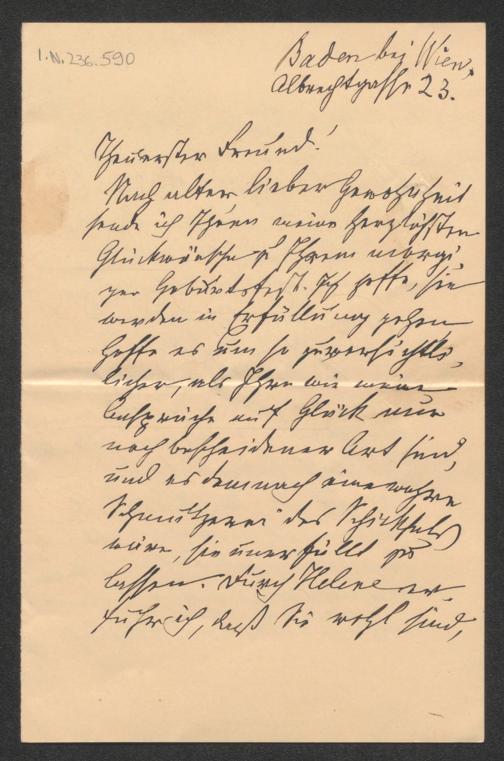 I.N. 236.590
Baden bei Wien,
Albrechtgasse 23.
Theuerster Freund!
Nach alter lieber Gewohnheit
sende ich Ihnen meine herzlichsten
Glückwünsche zu Ihrem morgi-
gen Geburtsfest. Ich hoffe, sie
werden in Erfüllung gehen
hoffe es um so zuversichtli-
licher, als Ihre wie meine
Ansprüche auf Glück nur
noch bescheidener Art sind,
und es demnach eine wahre
Schmutzerei des Schicksals
wäre, sie unerfüllt zu
lassen. Durch Helene er-
fuhr ich, daß Sie wohl sind,